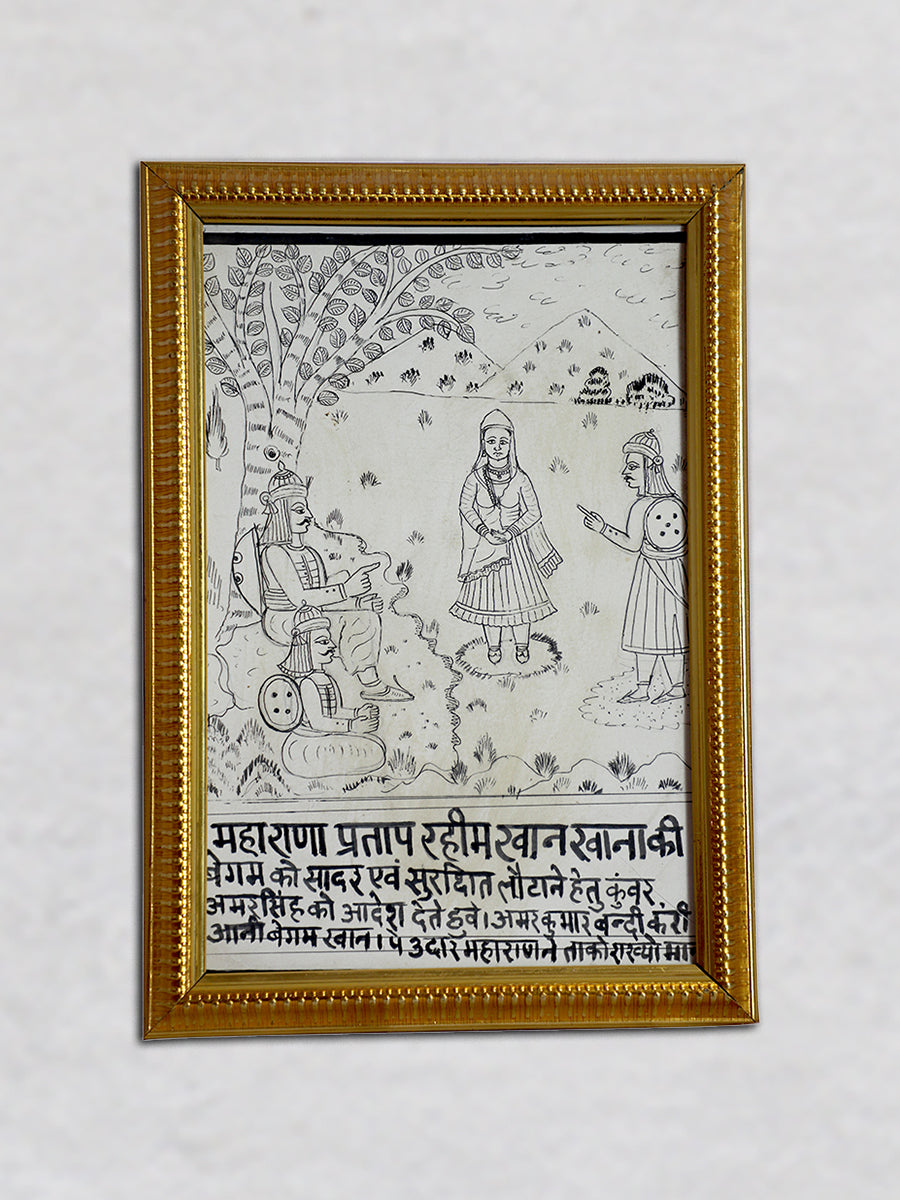 महाराणा प्रताप रहीम खान खाना की
बेगम को सादर एवं सुरक्षित लौटाने हेतु कुंवर
अमरसिंह को आदेश देते हुवे। अमर कुमार बन्दी करी
आनी बेगम खान। पे उदार महाराण ने ताको राख्यो